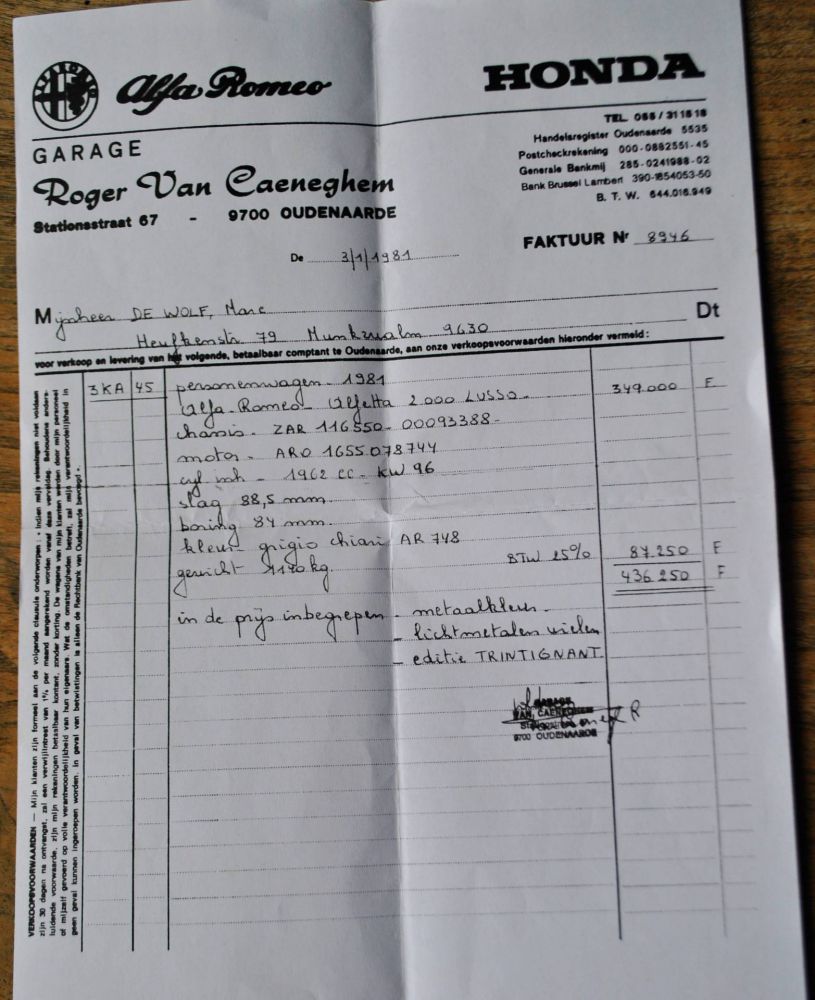 Alfa Romeo
HONDA
GARAGE
Roger Van Caeneghem
Stationsstraat 67 - 9700 OUDENAARDE
TEL. 055 / 31 18 18
Handelsregister Oudenaarde 5535
Postcheckrekening 000-0882551-45
Generale Bankmij 285-0241988-02
Bank Brussel Lambert 390-1854053-50
B. T. W. 644.016.949
De 3/1/1981
FAKTUUR Nr 8946
Mijnheer DE WOLF, Marc
79 Munkzwalm 9630
Dt
voor verkoop en levering van het volgende, betaalbaar comptant te Oudenaarde, aan onze verkoopsvoorwaarden hieronder vermeld:
3KA 45 personenwagen - 1981
Alfa-Romeo - Alfetta 2000 LUSSO - 349.000 F
chassis - ZAR 116550-00093388 -
motor - ARO 1655 078744
cyl inh - 1962 cc - KW 96
slag 88,5 mm
boring 84 mm.
kleur grigio chiari AR 748
gewicht 1140 kg. BTW 25% 87.250 F
436.250 F
in de prijs inbegrepen - metaalkleur -
- lichtmetalen wielen
- editie TRINTIGNANT
GARAGE
VAN CAENEGHEM
9700 OUDENAARDE
VERKOOPSVOORWAARDEN — Mijn klanten zijn formeel aan de volgende clausule onderworpen : « Indien mijn rekeningen niet voldaan
zijn 30 dagen na ontvangst, zal een verwijlintrest van 1% per maand aangerekend worden vanaf deze vervaldag. Behoudens anders-
luidende voorwaarde, zijn mijn rekeningen betaalbaar kontant, zonder korting. De wagens van mijn klanten worden door mijn personeel
of mijzelf gevoerd op volle verantwoordelijkheid van hun eigenaars. Wat de omstandigheden betreft, zal mijn verantwoordelijkheid in
geen geval kunnen ingeroepen worden. In geval van betwistingen is alleen de Rechtbank van Oudenaarde bevoegd ».